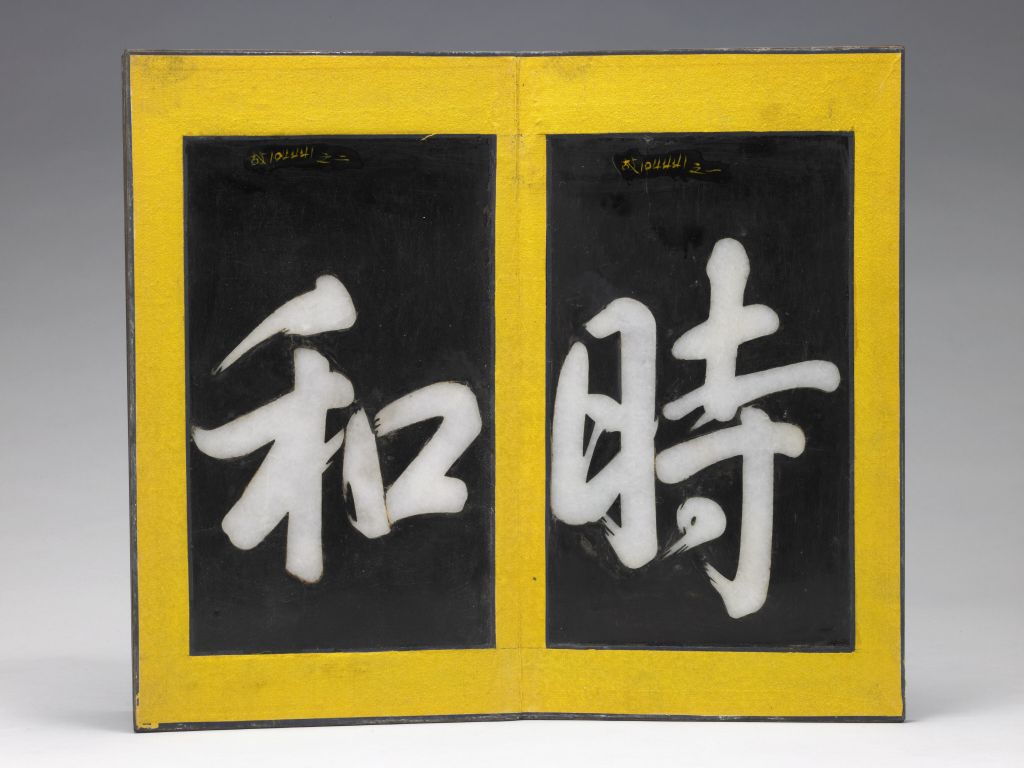 時
和
故104441之一
故104441之二